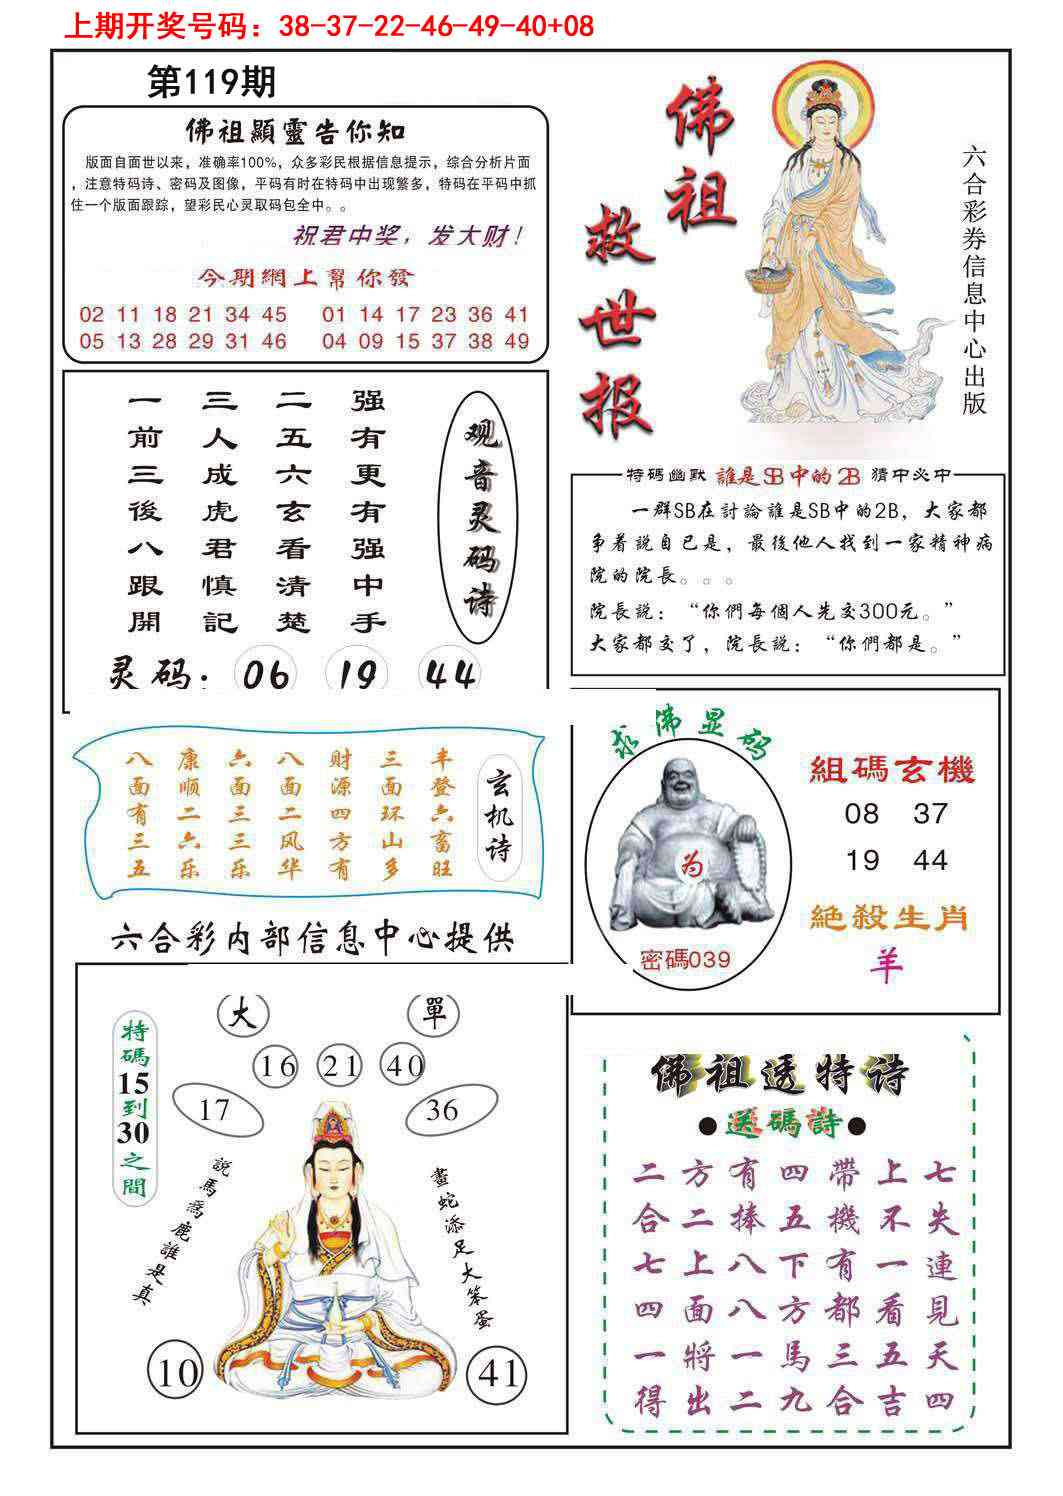 上期开奖号码：38-37-22-46-49-40+08
第119期
佛祖顯靈告你知
版面自面世以来，准确率100%，众多彩民根据信息提示，综合分析片面
，注意特码诗、密码及图像，平码有时在特码中出现繁多，特码在平码中抓
住一个版面跟踪，望彩民心灵取码包全中。。
祝君中奖，发大财！
今期網上幫你發
02 11 18 21 34 45 01 14 17 23 36 41
05 13 28 29 31 46 04 09 15 37 38 49
佛祖
救世报
六合彩券信息中心出版
一三二强
前人五有
三成六更
後虎玄有
八君看强
跟慎清中
開記楚手
观音灵码诗
灵码：06 19 44
特碼幽默 誰是SB中的2B 猜中必中
一群SB在討論誰是SB中的2B，大家都
争着說自已是，最後他人找到一家精神病
院的院長。。。
院長説：“你們每個人先交300元。”
大家都交了，院長説：“你們都是。”
八康六八财三丰
面顺面面源面登
有二三二四环六
三六三风方山畜
五乐乐华有多旺
玄机诗
六合彩内部信息中心提供
求佛显码
为
密碼039
組碼玄機
08 37
19 44
絶殺生肖
羊
特碼15到30之間
大 單
16 21 40
17 36
説馬爲鹿誰是真
畫蛇添足大笨蛋
10 41
佛祖透特诗
●送碼詩●
二方有四帶上七
合二捧五機不失
七上八下有一連
四面八方都看見
一將一馬三五天
得出二九合吉四